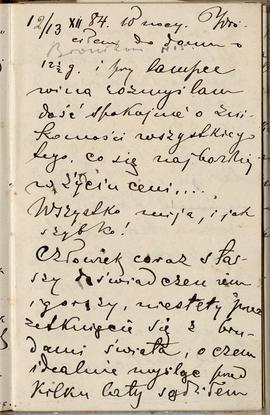 12/13 XII 84. W nocy. Wró-
ciłem do domu o
12½ g. i przy lampce
wina rozmyślam
dość spokojnie o zni-
komości wszystkiego
tego, co się najbardziej
w życiu ceni.....
Wszystko mija, i jak
szybko!
Człowiek coraz star-
szy doświadczeniem
i gorszy, niestety przez
zetknięcie się z bru-
dami świata, o czem
idealnie myśląc przed
kilku laty sądziłem